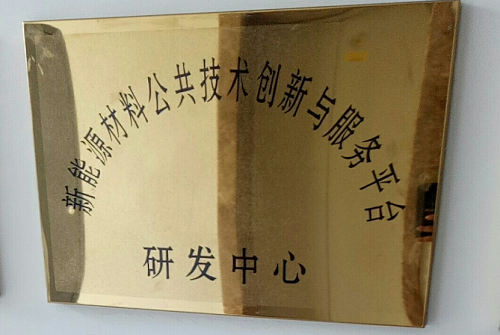 新能源材料公共技术创新与服务平台
研发中心